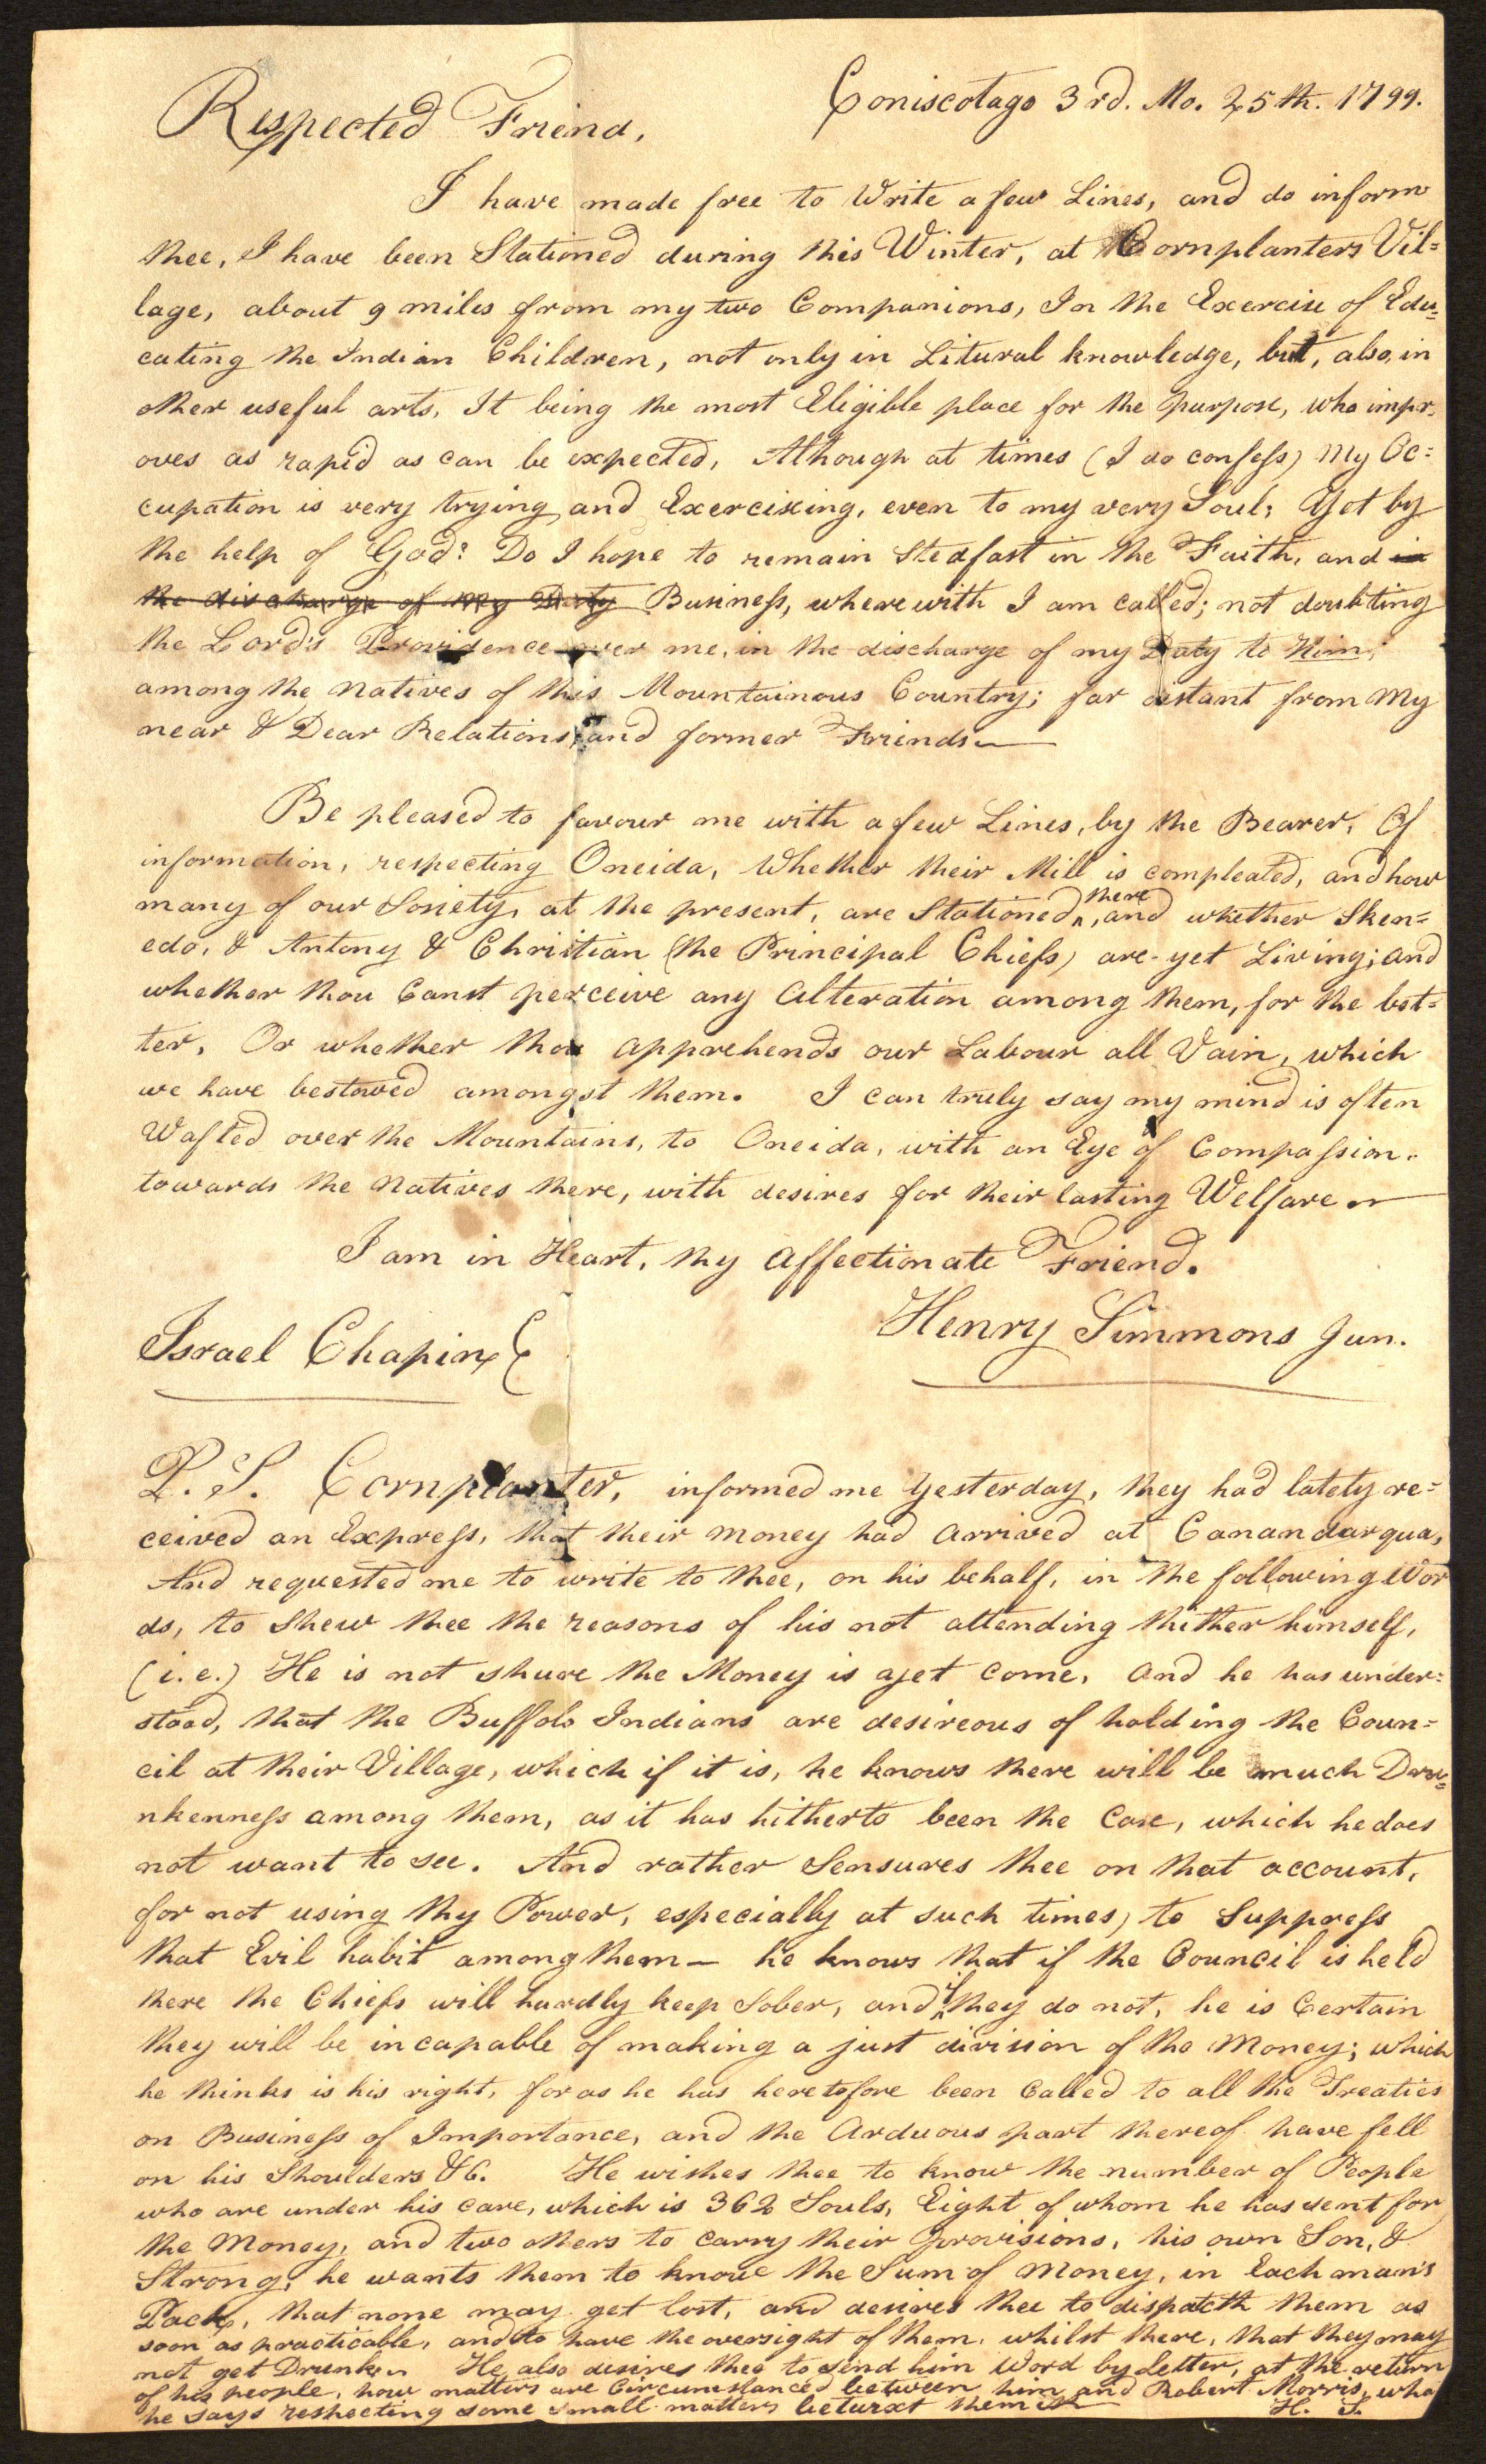 Coniscotago 3rd. Mo. 25th. 1799.
Respected Friend,
I have made free to Write a few Lines, and do inform
thee, I have been Stationed during this Winter, at Cornplanters Vil=
lage, about 9 miles from my two Companions, In the Exercise of Edu=
cating the Indian Children, not only in Litural knowledge, but, also, in
other useful arts, It being the most Eligible place for the purpose, who impr=
oves as rapid as can be expected, Although at times (I do confess) My Oc=
cupation is very trying and Exercising, even to my very Soul; Yet by
the help of God: Do I hope to remain Stedfast in the Faith, and in
the discharge of my Duty Business, wherewith I am called; not doubting
the Lord's Providence over me, in the discharge of my Duty to Him;
among the Natives of this Mountainous Country; far distant from My
near & Dear Relations, and former Friends
Be pleased to favour me with a few Lines, by the Bearer, Of
information, respecting Oneida, Whether their Mill is compleated, and how
many of our Society, at the present, are Stationed there, and whether Sken=
edo, & Antony & Christian (the Principal Chiefs) are yet Living; and
whether thou Canst perceive any Alteration among them, for the bet=
ter, Or whether thou apprehends our Labour all Vain, which
we have bestowed amongst them. I can truly say my mind is often
Wafted over the Mountains, to Oneida, with an Eye of Compassion.
towards the Natives there, with desires for their lasting Welfare
I am in Heart, thy Affectionate Friend.
Henry Simmons Jun.
Israel Chapin
P. S. Cornplanter, informed me Yesterday, they had lately re=
ceived an Express, that their money had Arrived at Canandarqua,
And requested me to write to thee, on his behalf, in the following Wor
ds, to Shew thee the reasons of his not attending thither himself,
(i.e.) He is not shure the Money is ayet Come, And he has under=
stood, that the Buffolo Indians are desireous of holding the Coun=
cil at their Village, which if it is, he knows there will be much Dru=
nkenness among them, as it has hitherto been the Case, which he does
not want to see. And rather Sensures thee on that account,
for not using thy Power, especially at such times) to Suppress
that Evil habit among them — he knows that if the Council is held
there the Chiefs will hardly keep Sober, and if they do not, he is Certain
they will be incapable of making a just division of the Money; which
he thinks is his right, for as he has heretofore been Called to all the Treaties
on Business of Importance, and the Arduous part thereof have fell
on his Shoulders &C. He wishes thee to know the number of People
who are under his care, which is 362 Souls, Eight of whom he has sent for
the Money, and two others to Carry their Provisions, his own Son, &
Strong; he wants them to know the Sum of Money, in Each man's
Pack, that none may get lost, and desires thee to dispatcth them as
soon as practicable, and to have the oversight of them, whilst there, that they may
not get Drunken He also desires thee to send him Word by Letter, at the return
of his people, how matters are Circumstanced between him and Robert Morris, who
he says respecting some small matters beturxt them
H. S.